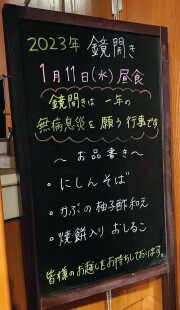 2023年 鏡開き
1月11日(水) 昼食
鏡開きは 一年の
無病息災を 願う 行事です
～ お品書き ～
・にしんそば
・かぶの柚子酢和え
・焼餅入り おしるこ
皆様のお越しをお待ちしております。